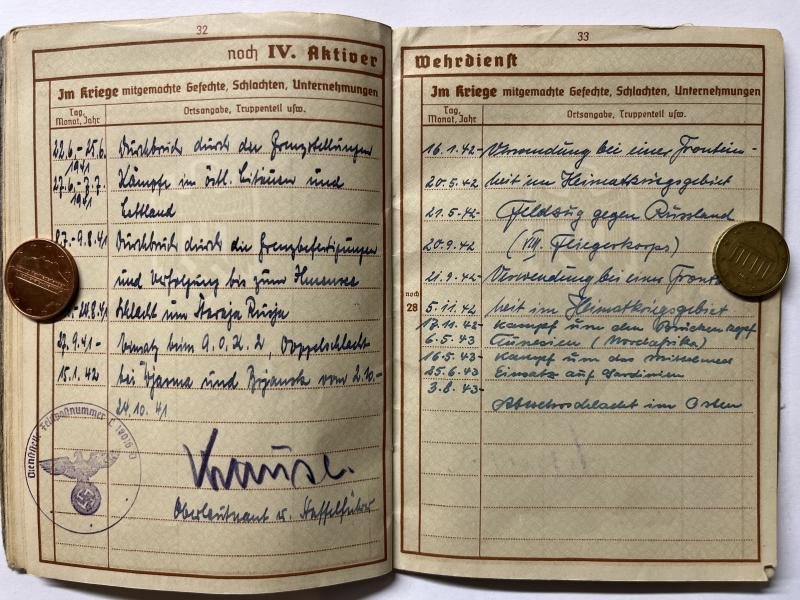 32
noch IV. Aktiver
Im Kriege mitgemachte Gefechte, Schlachten, Unternehmungen
Tag, Monat, Jahr
Ortsangabe, Truppenteil usw.
22.6.-25.6. 1941 Durchbruch durch die Grenzstellungen
27.6.-7.7. 1941 Kämpfe im östl. Litauen und
Lettland
8.7.-9.8.41 Durchbruch durch die Grenzbefestigungen
und Verfolgung bis zum Ilmensee
Schlacht um Staraja Russja
27.9.41- Einsatz beim A.O.K. 2, Doppelschlacht
15.1.42 bei Wjasma und Brjansk vom 2.10.-
24.10.41
Krause.
Oberleutnant u. Staffelführer
Dienststelle Feldpostnummer L
33
Wehrdienst
Im Kriege mitgemachte Gefechte, Schlachten, Unternehmungen
Tag, Monat, Jahr
Ortsangabe, Truppenteil usw.
16.1.42- Verwendung bei einer Frontein-
20.5.42 heit im Heimatkriegsgebiet
21.5.42- Feldzug gegen Russland
20.9.42 (VIII. Fliegerkorps)
21.9.42- Verwendung bei einer Front
noch 28
5.11.42 heit im Heimatkriegsgebiet
17.11.42- Kampf um den Brückenkopf
6.5.43 Tunesien (Nordafrika)
16.5.43- Kampf um das Mittelmeer
25.6.43 Einsatz auf Sardinien
3.8.43-
Abwehrschlacht im Osten